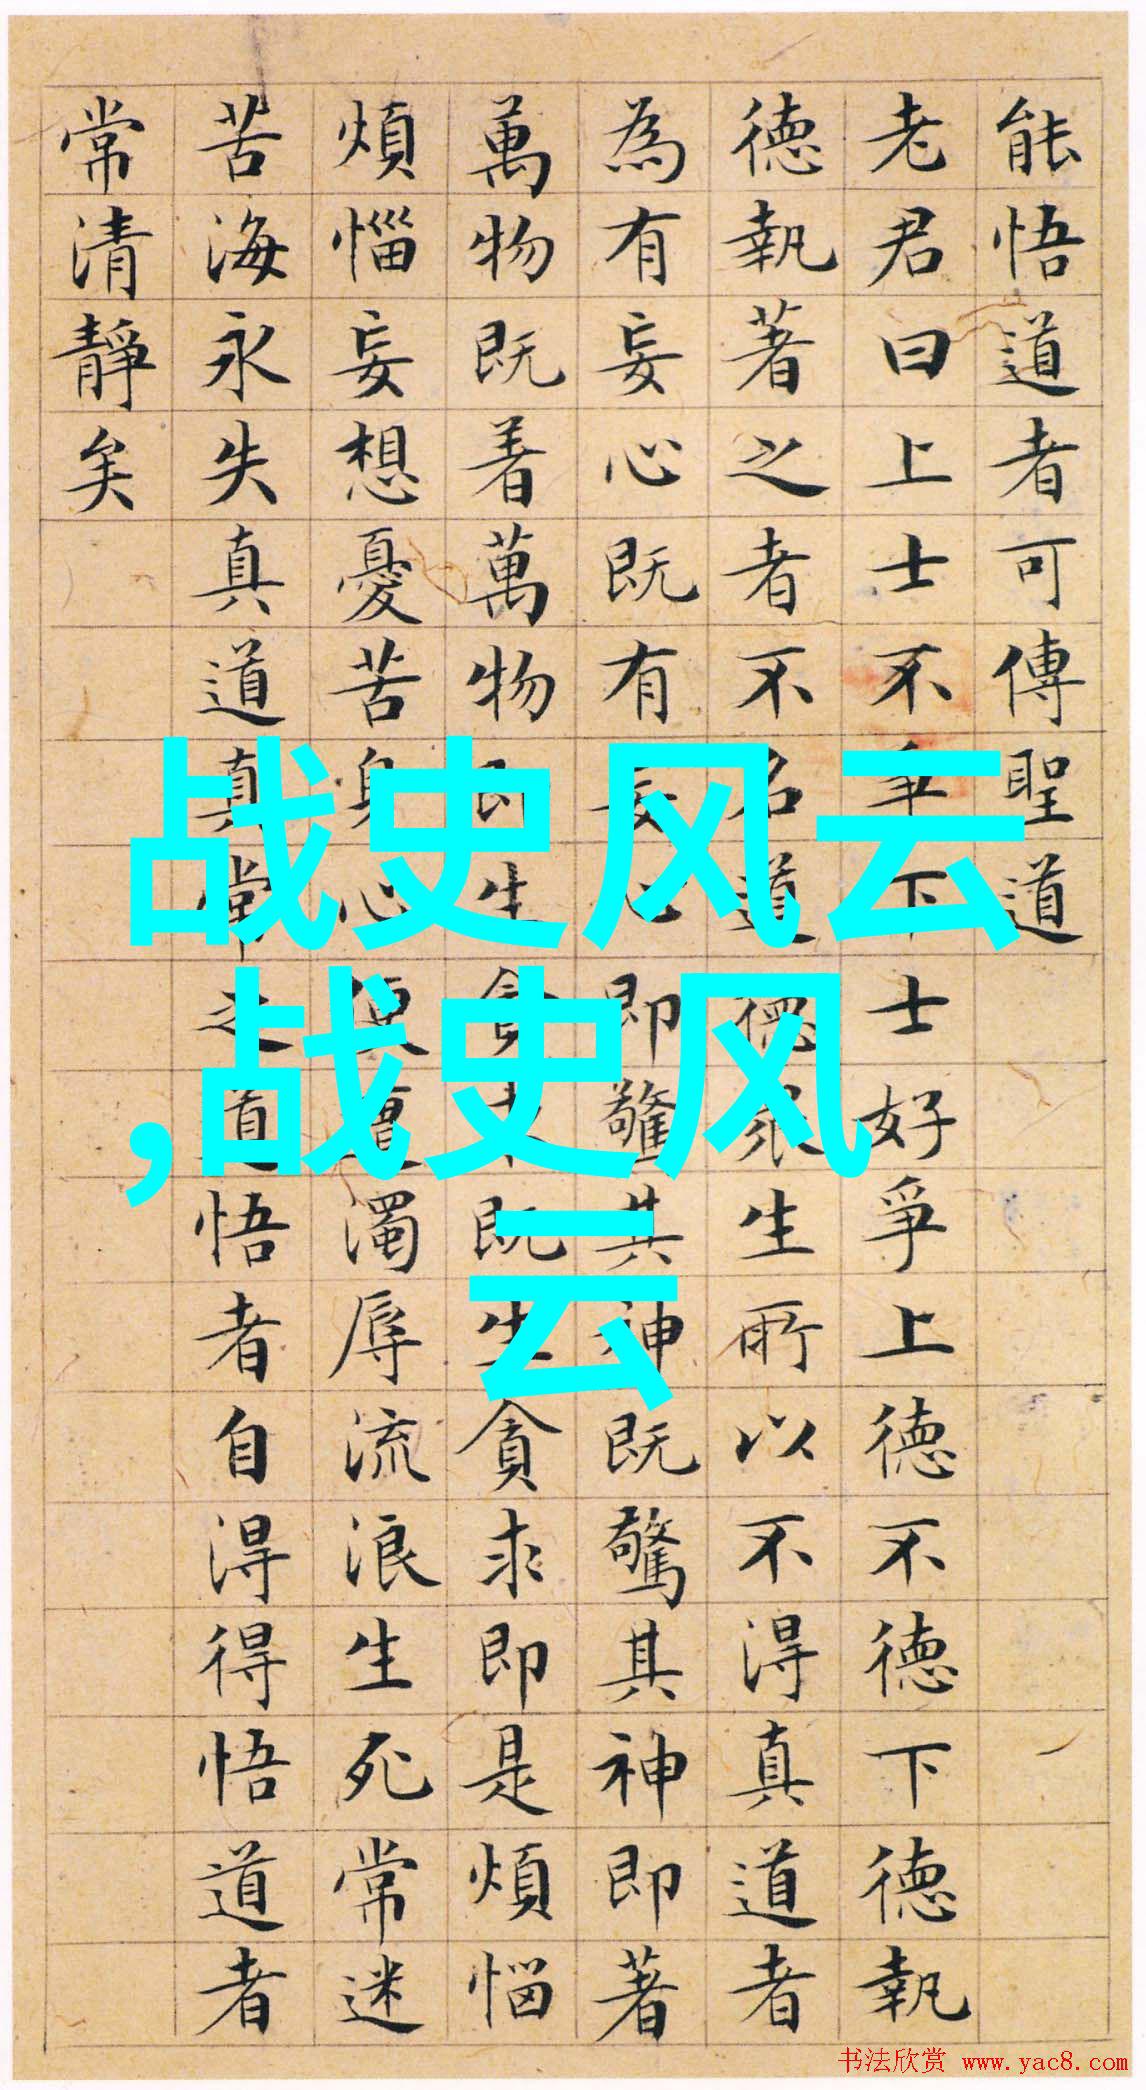 能悟道者可傳聖道
老君曰上士不爭下士好爭上德不德下德執
德執著之者不名道德眾生所以不得真道者
為有妄心既有妄心即驚其神既驚其神即著
萬物既着萬物即生貪求既生貪求即是煩惱
煩惱妄想憂苦身心便遭濁辱流浪生死常迷
苦海永失真道真常之道悟者自得得悟道者
常清靜矣
战史风云
,战史风
云
书法欣赏 www.yac8.com